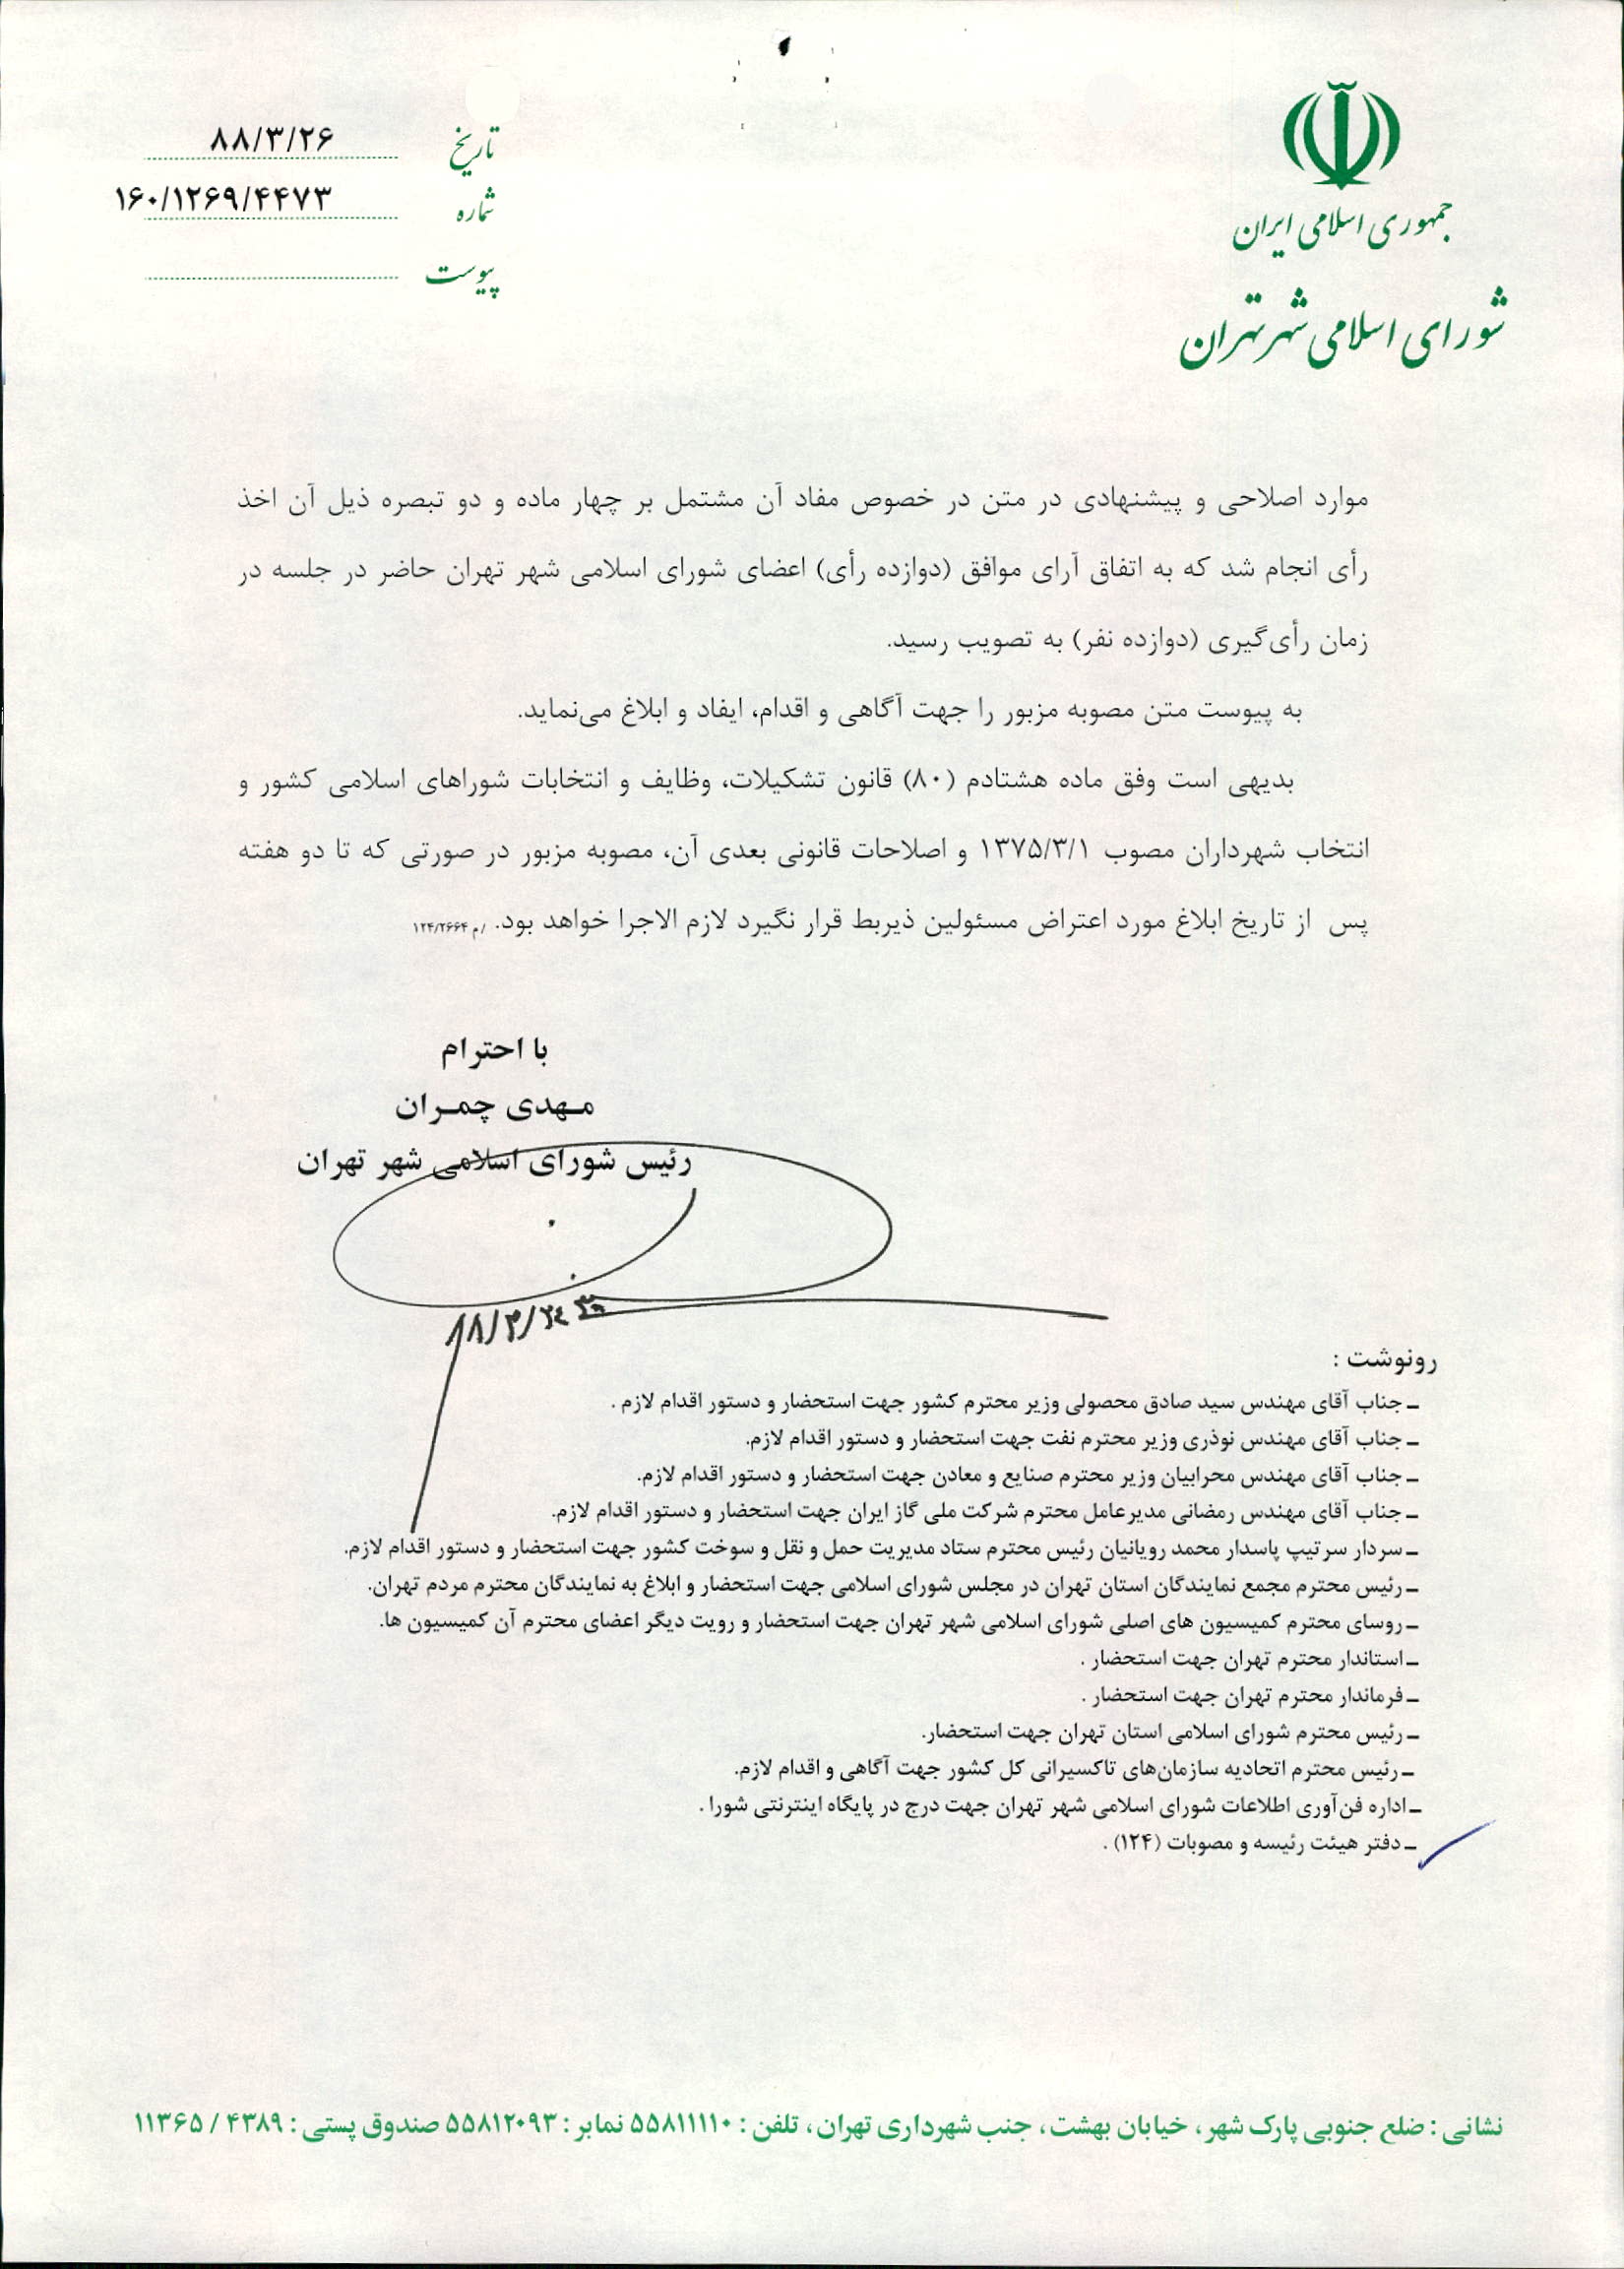 جمهوری اسلامی ایران
شورای اسلامی شهر تهران
تاریخ ۸۸/۳/۲۶
شماره ۱۶۰/۱۲۶۹/۴۴۷۳
پیوست
موارد اصلاحی و پیشنهادی در متن در خصوص مفاد آن مشتمل بر چهار ماده و دو تبصره ذیل آن اخذ
رأی انجام شد که به اتفاق آرای موافق (دوازده رأی) اعضای شورای اسلامی شهر تهران حاضر در جلسه در
زمان رأی‌گیری (دوازده نفر) به تصویب رسید.
به پیوست متن مصوبه مزبور را جهت آگاهی و اقدام، ایفاد و ابلاغ می‌نماید.
بدیهی است وفق ماده هشتادم (۸۰) قانون تشکیلات، وظایف و انتخابات شوراهای اسلامی کشور و
انتخاب شهرداران مصوب ۱۳۷۵/۳/۱ و اصلاحات قانونی بعدی آن، مصوبه مزبور در صورتی که تا دو هفته
پس از تاریخ ابلاغ مورد اعتراض مسئولین ذیربط قرار نگیرد لازم الاجرا خواهد بود. /م ۱۲۴/۲۶۶۴
با احترام
مهدی چمران
رئیس شورای اسلامی شهر تهران
رونوشت :
ـ جناب آقای مهندس سید صادق محصولی وزیر محترم کشور جهت استحضار و دستور اقدام لازم .
ـ جناب آقای مهندس نوذری وزیر محترم نفت جهت استحضار و دستور اقدام لازم.
ـ جناب آقای مهندس محرابیان وزیر محترم صنایع و معادن جهت استحضار و دستور اقدام لازم.
ـ جناب آقای مهندس رمضانی مدیرعامل محترم شرکت ملی گاز ایران جهت استحضار و دستور اقدام لازم.
ـ سردار سرتیپ پاسدار محمد رویانیان رئیس محترم ستاد مدیریت حمل و نقل و سوخت کشور جهت استحضار و دستور اقدام لازم.
ـ رئیس محترم مجمع نمایندگان استان تهران در مجلس شورای اسلامی جهت استحضار و ابلاغ به نمایندگان محترم مردم تهران.
ـ روسای محترم کمیسیون های اصلی شورای اسلامی شهر تهران جهت استحضار و رویت دیگر اعضای محترم آن کمیسیون ها.
ـ استاندار محترم تهران جهت استحضار .
ـ فرماندار محترم تهران جهت استحضار .
ـ رئیس محترم شورای اسلامی استان تهران جهت استحضار.
ـ رئیس محترم اتحادیه سازمان‌های تاکسیرانی کل کشور جهت آگاهی و اقدام لازم.
ـ اداره فن‌آوری اطلاعات شورای اسلامی شهر تهران جهت درج در پایگاه اینترنتی شورا .
ـ دفتر هیئت رئیسه و مصوبات (۱۲۴) .
نشانی : ضلع جنوبی پارک شهر ، خیابان بهشت ، جنب شهرداری تهران ، تلفن : ۵۵۸۱۱۱۱۰ نمابر : ۵۵۸۱۲۰۹۳ صندوق پستی : ۴۳۸۹ / ۱۱۳۶۵